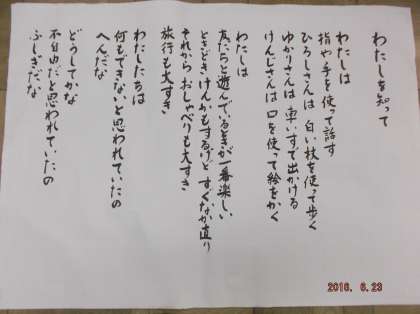 わたしを知って
わたしは
指や手を使って話す
ひろしさんは 白い杖を使って歩く
ゆかりさんは 車いすで出かける
けんじさんは 口を使って絵をかく
わたしは
友だちと遊んでいるときが一番楽しい
ときどきけんかもするけど すぐなか直り
それからおしゃべりも大すき
旅行も大すき
わたしたちは
何もできないと思われていたの
へんだな
どうしてかな
不自由だと思われていたの
ふしぎだな
2016. 6.23